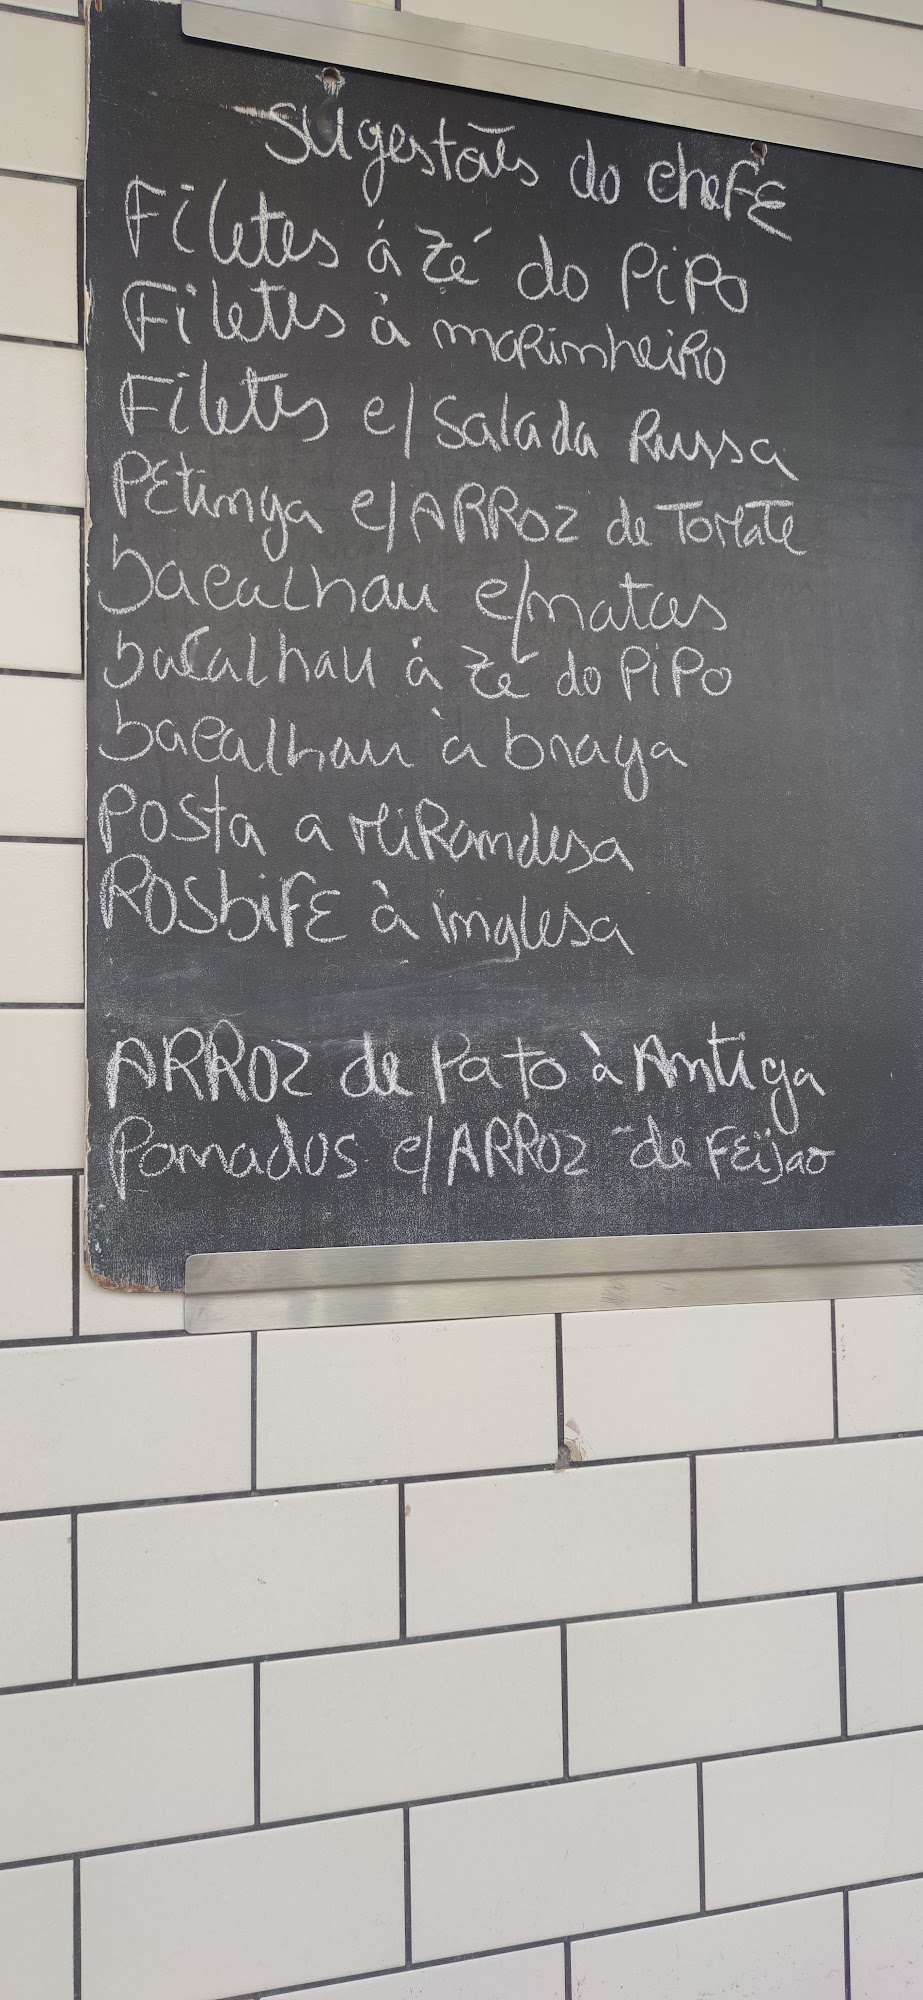 Sugestões do chefe
Filetes á Zé do Pipo
Filetes à marinheiro
Filetes c/ Salada Russa
Petinga c/ ARROZ de Tomate
bacalhau c/ natas
bacalhau à Zé do Pipo
bacalhau à braga
Posta a mirandesa
ROSbiFE à inglesa
ARROZ de Pato à Antiga
Panados c/ ARROZ de Feijao